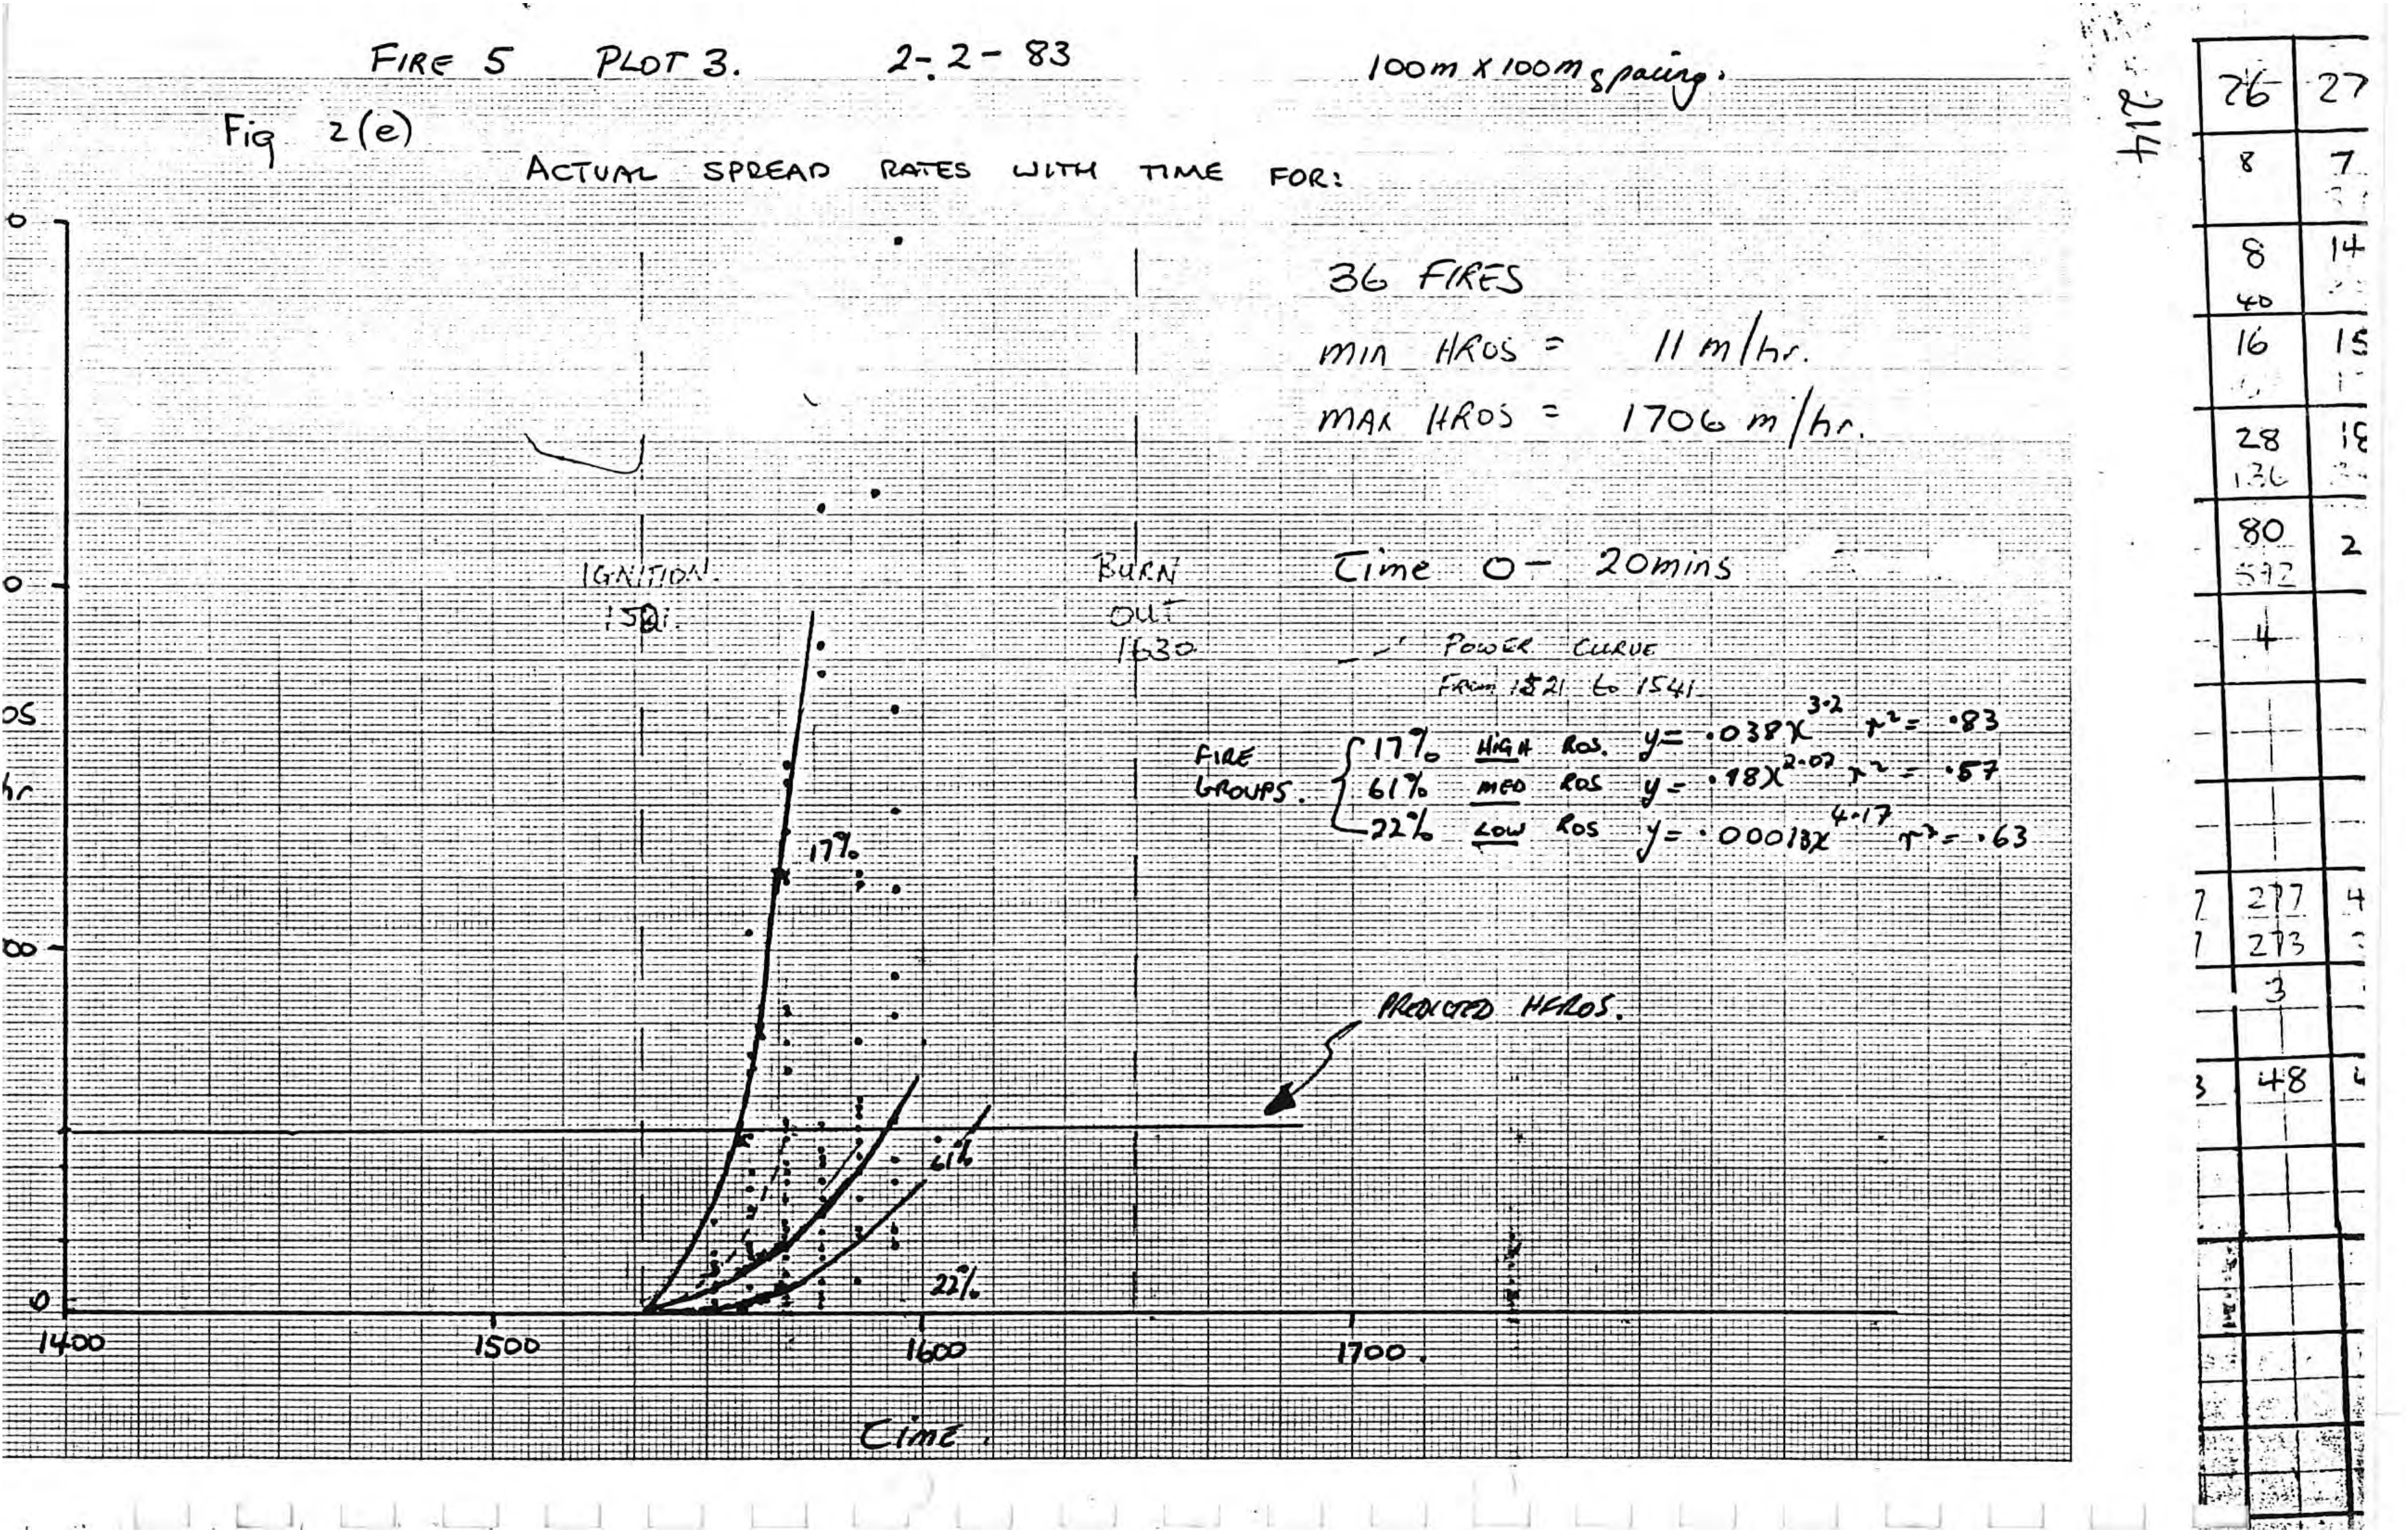 FIRE 5 PLOT 3. 2-2-83
100m X 100m spacing.
Fig 2(e)
ACTUAL SPREAD RATES WITH TIME FOR:
214
36 FIRES
MIN HROS = 11 m/hr.
MAX HROS = 1706 m/hr.
IGNITION.
1521.
BURN
OUT
1630
Time 0 - 20mins
POWER CURVE
From 1521 to 1541.
FIRE
GROUPS.
17% HIGH ROS. y = .038x^3.2 r² = .83
61% MED ROS y = .18x^2.07 r² = .57
22% LOW ROS y = .00013x^4.17 r² = .63
hr
17%
PREDICTED HFROS.
61%
22%
0
1400 1500 1600 1700.
Time.
26 27
8 7
8 14
40
16 15
28 18
136
80 2
592
4
7 277 4
7 273
3
3 48